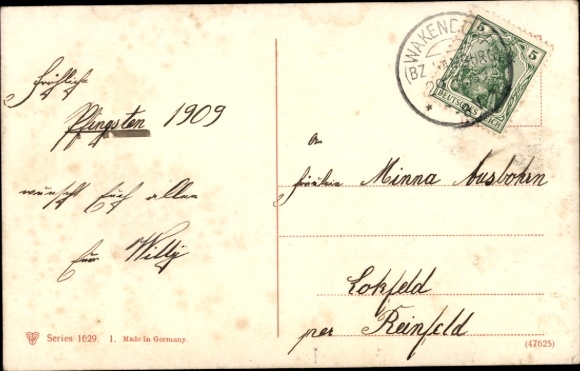 Fröhliche
Pfingsten 1909
wünscht Euch allen
Eur Willy
Series 1629. 1. Made in Germany.
WAKEND
(BZ BURG
5 5
DEUTSCHES REICH
An
Fräulein Minna Ausbohrn
Lokfeld
per Reinfeld
(47625)